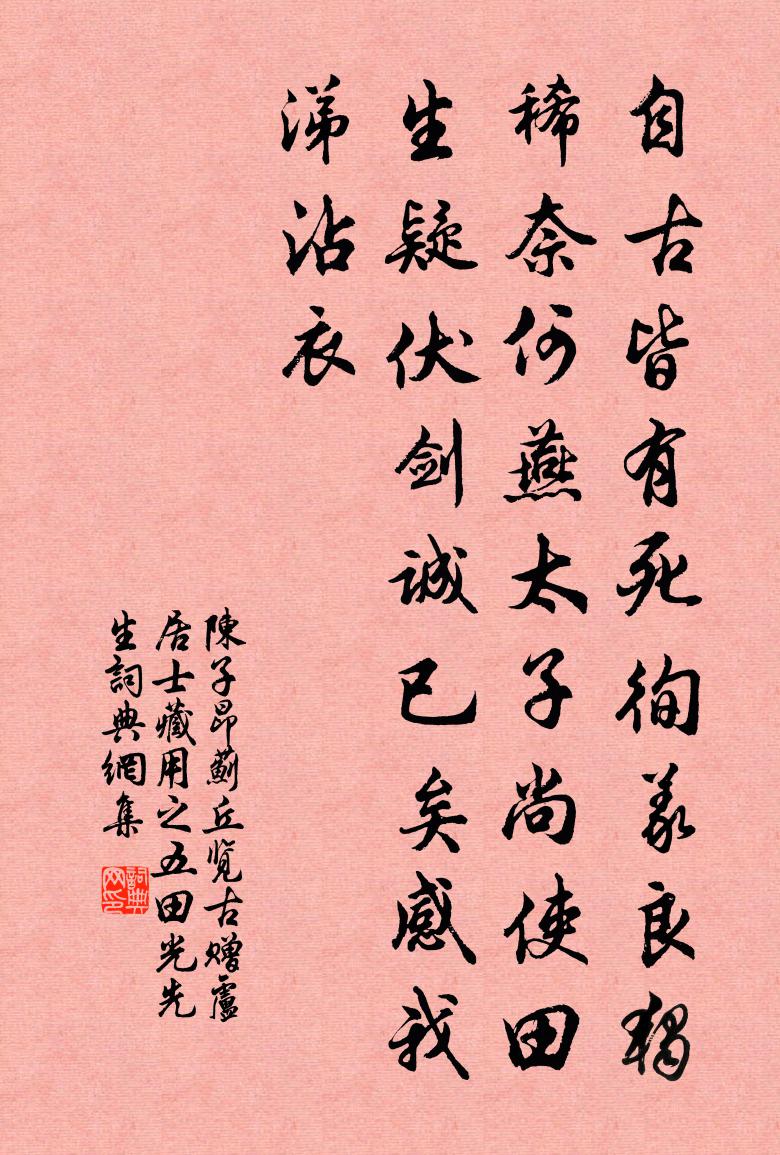 自古皆有死徇義良獨
稀奈何燕太子尚使田
生疑伏劍誠已矣感我
涕沾衣
陳子昂薊丘覽古贈盧
居士藏用之五田光先
生詞典網集
詞典
网印